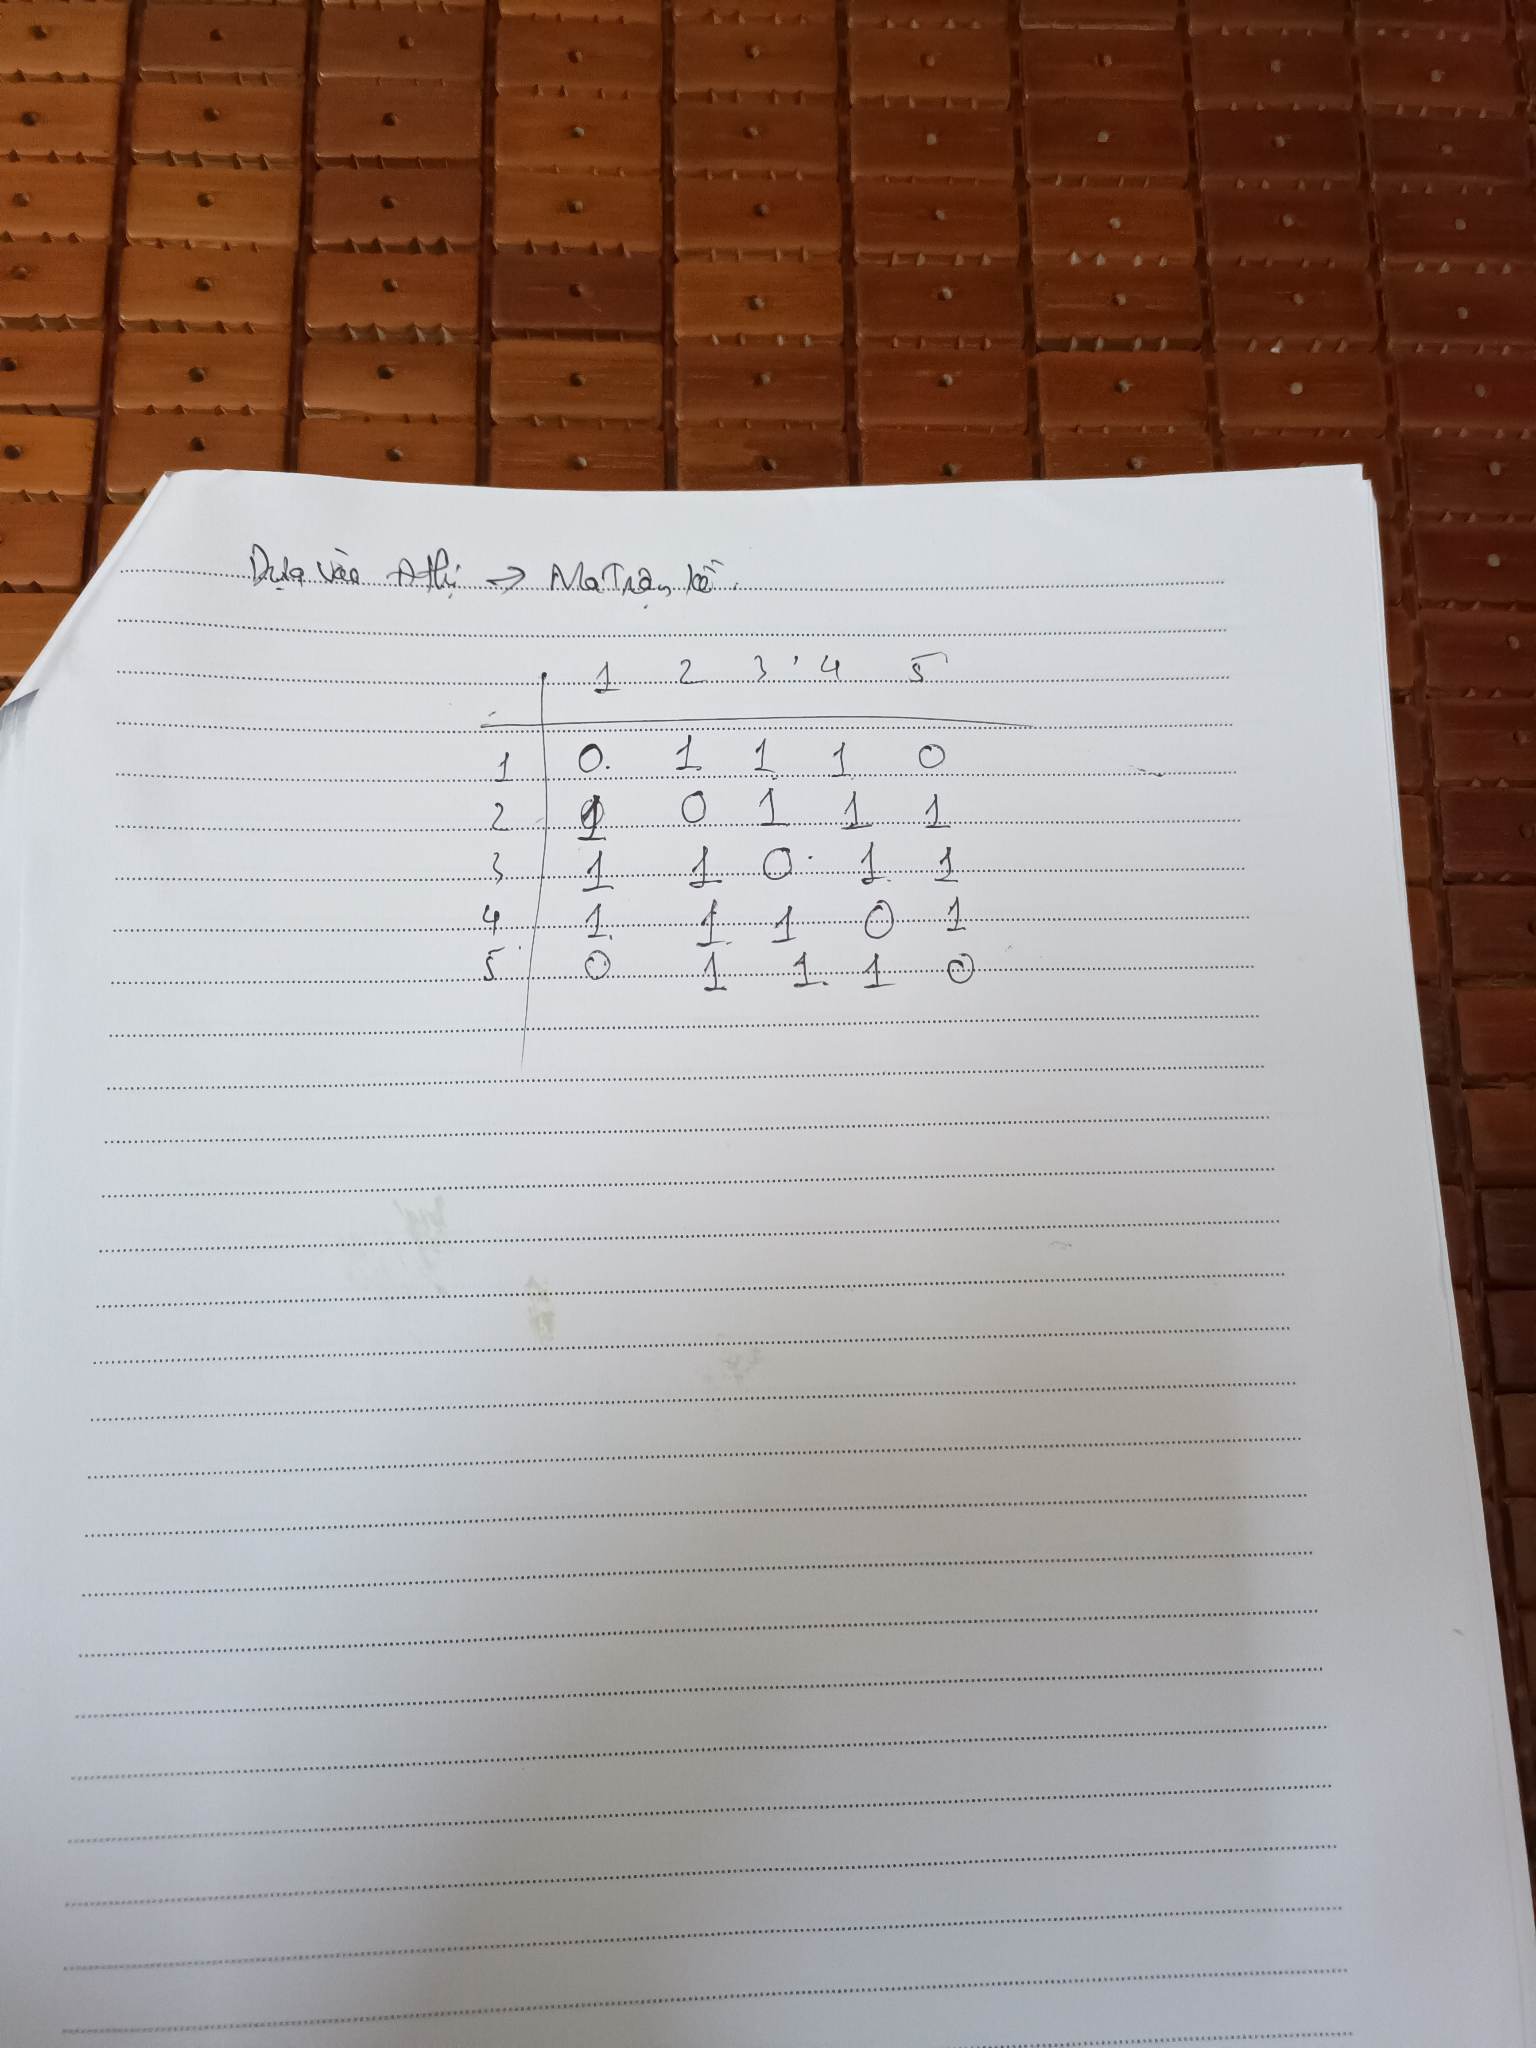 Dựa vào đthị → Ma Trận kề.
1 2 3 4 5
1 0 1 1 1 0
2 1 0 1 1 1
3 1 1 0 1 1
4 1 1 1 0 1
5 0 1 1 1 0